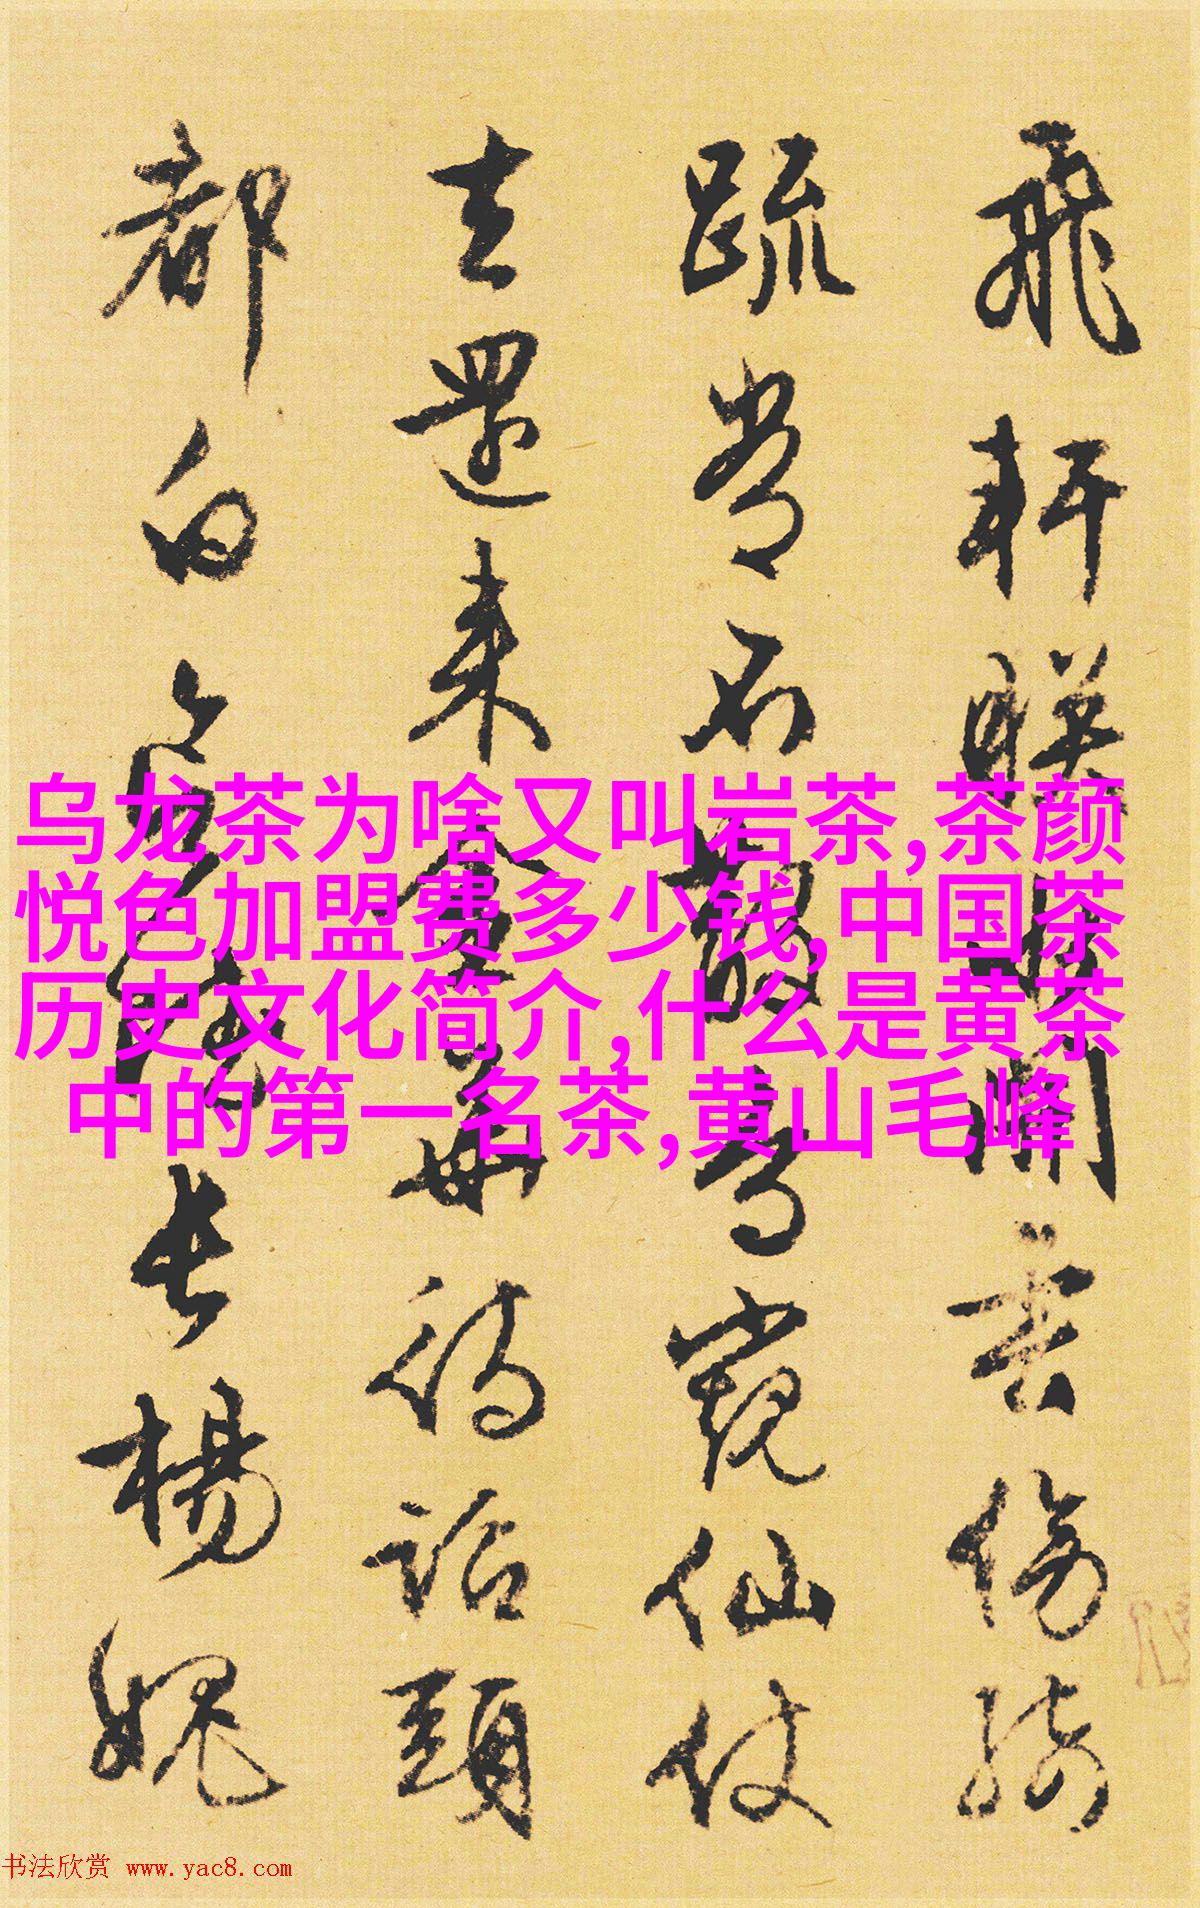 飛軒聯開言傍綺
疏不觀仙仗
去還來金華待詔頭
都白長楊愧
乌龙茶为啥又叫岩茶,茶颜
悦色加盟费多少钱,中国茶
历史文化简介,什么是黄茶
中的第一名茶,黄山毛峰
书法欣赏 www.yac8.com